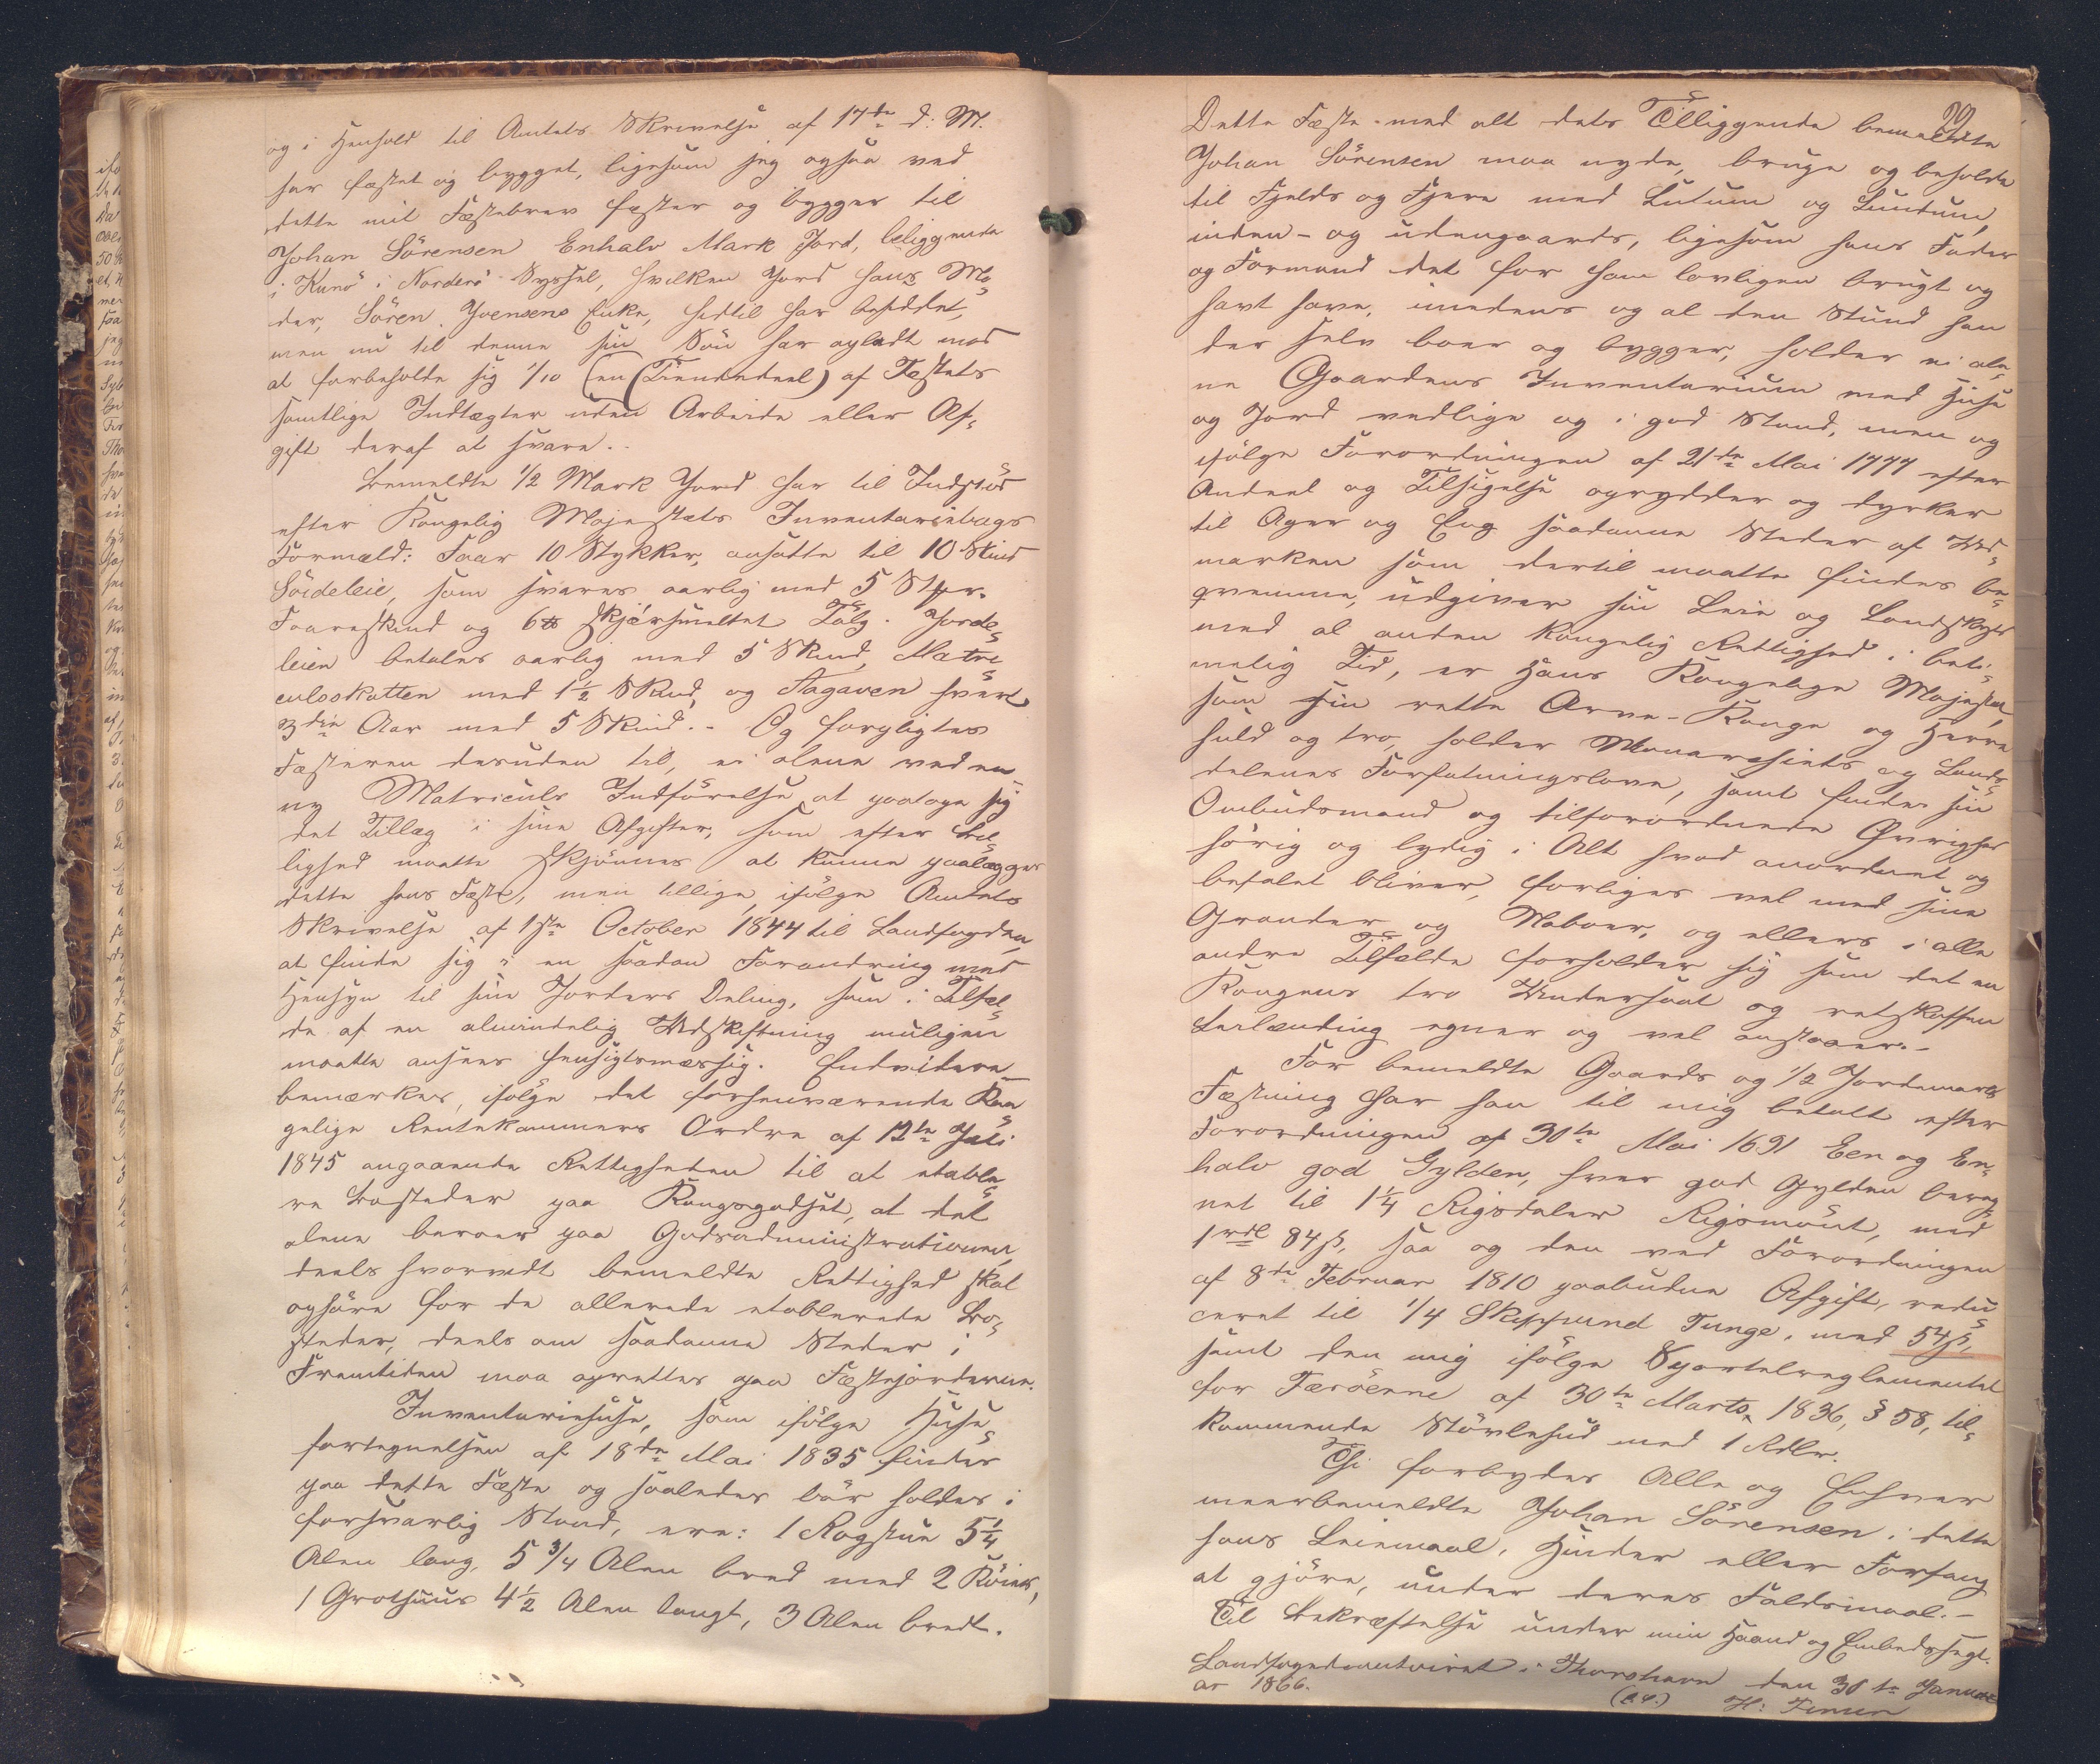 og i Henhold til Amtets Skrivelse af 17de d: M.
har fæstet og bygget, ligesom jeg ogsaa ved
dette mit Fæstebrev fæster og bygger til
Johan Sörensen Enhalv Mark Jord, beliggende
i Kunö i Norderö Syssel, hvilken Jord hans Mo-
der, Sören Joensens Enke, hidtil har besiddet,
men nu til denne sin Sön har opladt mod
at forbeholde sig 1/10 (en Tiendedeel) af Fæstets
samtlige Indtægter uden Arbeide eller Af-
gift deraf at svare.-
Bemeldte 1/2 Mark Jord har til Indstöd
efter Kongelig Majestæts Inventariebogs
Formæld: Faar 10 Stykker, ansatte til 10 Skind
Söideleie, som svares aarlig med 5 Stkr.
Faareskind og 6 ℔ skjærsmeltet Talg. Jorde-
leien betales aarlig med 5 Skind, Matri-
culsskatten med 1 1/2 Skind, og Aagaven hvert
3die Aar med 5 Skind.- Og forpligtes
Fæsteren desuden til, ei alene ved en
ny Matriculs Indförelse at paatage sig
det Tillæg i sine Afgifter, som efter Bil-
lighed maatte skjönnes at kunne paalægges
dette hans Fæste, men tillige ifölge Amtets
Skrivelse af 1ste October 1844 til Landfogden
at finde sig i en saadan Forandring med
Hensyn til sine Jorders Deling, som i Tilfæl-
de af en almindelig Udskiftning muligen
maatte ansees hensigtsmæssig. Endvidere
bemærkes, ifölge det forhenværende Kon-
gelige Rentekammers Ordre af 12te Juli
1845 angaaende Rettigheden til at etable-
re Bosteder paa Kongsgodset, at det
alene beroer paa Godsadministrationen,
deels hvorvidt bemeldte Rettighed skal
ophöre for de allerede etablerede Bo-
steder, deels om saadanne Steder i
Fremtiden maa oprettes paa Fæstejorderne.
Inventariehuse, som ifölge Huse-
fortegnelsen af 18de Mai 1835 findes
paa dette Fæste og saaledes bör holdes i
forsvarlig Stand, ere: 1 Rogstue 5 1/4
Alen lang, 5 3/4 Alen bred med 2
1 Grothuus 4 1/2 Alen langt, 3 Alen bredt.
29
Dette Fæste med alt dets Tilliggende bemeldte
Johan Sörensen maa nyde, bruge og beholde
til Fjelds og Fjere med Lutum og Lundum,
inden- og udengaards, ligesom hans Fader
og Formand det før ham lovligen brugt og
havt have, imedens og al den Stund han
der selv boer og bygger, holder ei ale-
ne Gaardens Inventarium med Huse
og Jord vedlige og i god Stand, men og
ifölge Forordningen af 21de Mai 1777 efter
Andeel og Tilsigelse oprydder og dyrker
til Ager og Eng saadanne Steder af Ud-
marken som dertil maatte findes be-
qvemme, udgiver sin Leie og Landskyld
med al anden Kongelig Rettighed i beti-
melig Tid, er Hans Kongelige Majestæt,
som sin rette Arve-Konge og Herre
huld og tro, holder Monarchiets og Lands-
delenes Forfatningslove, samt findes sin
Ombudsmand og tilforordnede Øvrighed
hörig og lydig i Alt hvad anordnet og
befalet bliver, forliges vel med sine
Grander og Naboer, og ellers i alle
andre Tilfælde forholder sig som det en
Kongens tro Undersaat og retskaffen
Leilænding egner og vel anstaaer.-
For bemeldte Gaards og 1/2 Jordemarks
Fæstning har han til mig betalt efter
Forordningen af 30te Mai 1691 Een og En-
halv god Gylden, hver god Gylden bereg-
net til 1 1/4 Rigsdaler Rigsmönt, med
1 rdl 84 ß, saa og den ved Forordningen
af 8de Februar 1810 paabudne Afgift, redu-
ceret til 1/4 Skippund Tunge, med 54 ß,
samt den mig ifölge Sportelreglementet
for Færöerne af 30te Marts 1836, § 58, til-
kommende Stövlehud med 1 Rdlr.
Thi forbydes Alle og Enhver
meerbemeldte Johan Sörensen i dette
hans Leiemaal, Hinder eller Forfang
at gjöre, under deres Faldsmaal.-
Til Bekræftelse under min Haand og Embedssegl.
Landfogedcontoiret i Thorshavn den 30te Janu-
ar 1866.
H: